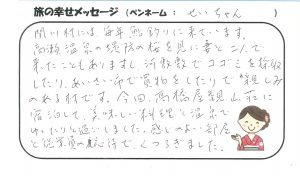 旅の幸せメッセージ (ペンネーム : せいちゃん )
関川村には毎年鮎釣りに来ています。
高瀬温泉の堤防の桜を見に妻と二人で
来たこともありますし、河川敷でコゴミを採取
したり、あいさい市で買物をしたりで親しみ
のある村です。今回、高橋屋観山荘に
宿泊して、美味しい料理と温泉で
ゆったりと過しました。感じのよい部屋
と従業員の応待で、くつろぎました。